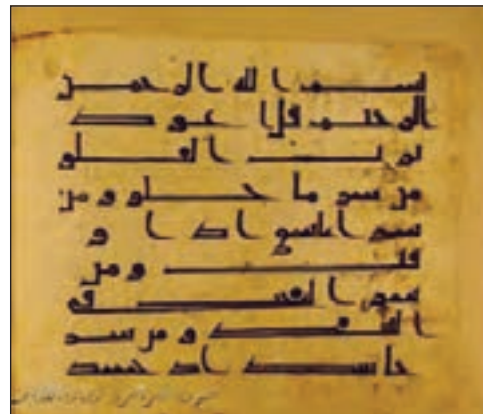 بسم الله الرحمن
الرحيم قل اعوذ
برب الفلق
من شر ما خلق و من
شر غاسق اذا و
قب و من
شر النفثت فى
العقد و من شر
حاسد اذا حسد